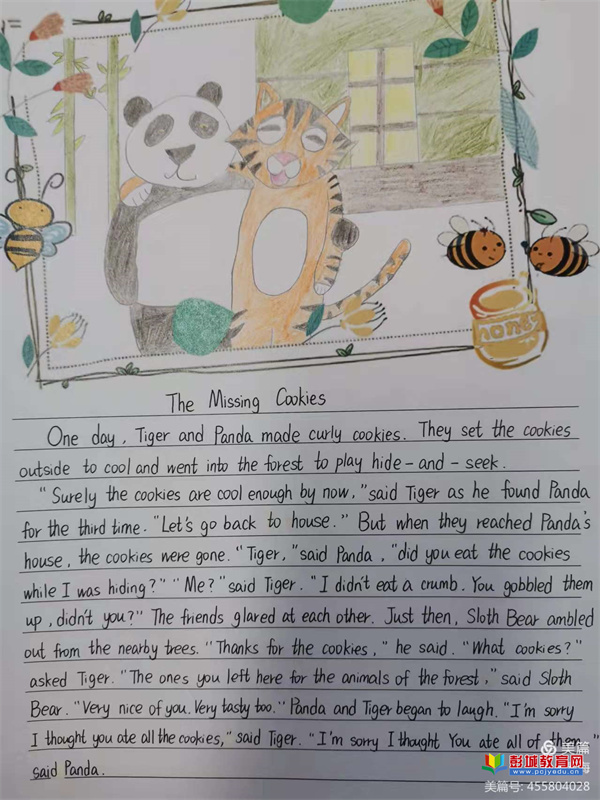 honey
The Missing Cookies
One day, Tiger and Panda made curly cookies. They set the cookies
outside to cool and went into the forest to play hide-and-seek.
"Surely the cookies are cool enough by now," said Tiger as he found Panda
for the third time. "Let's go back to house." But when they reached Panda's
house, the cookies were gone. "Tiger," said Panda, "did you eat the cookies
while I was hiding?" "Me?" said Tiger. "I didn't eat a crumb. You gobbled them
up, didn't you?" The friends glared at each other. Just then, Sloth Bear ambled
out from the nearby trees. "Thanks for the cookies," he said. "What cookies?"
asked Tiger. "The ones you left here for the animals of the forest," said Sloth
Bear. "Very nice of you. Very tasty too." Panda and Tiger began to laugh. "I'm sorry
I thought you ate all the cookies," said Tiger. "I'm sorry I thought You ate all of them."
said Panda.
美篇
彭城教育网
www.pcjyedu.cn
美篇号: 455804028